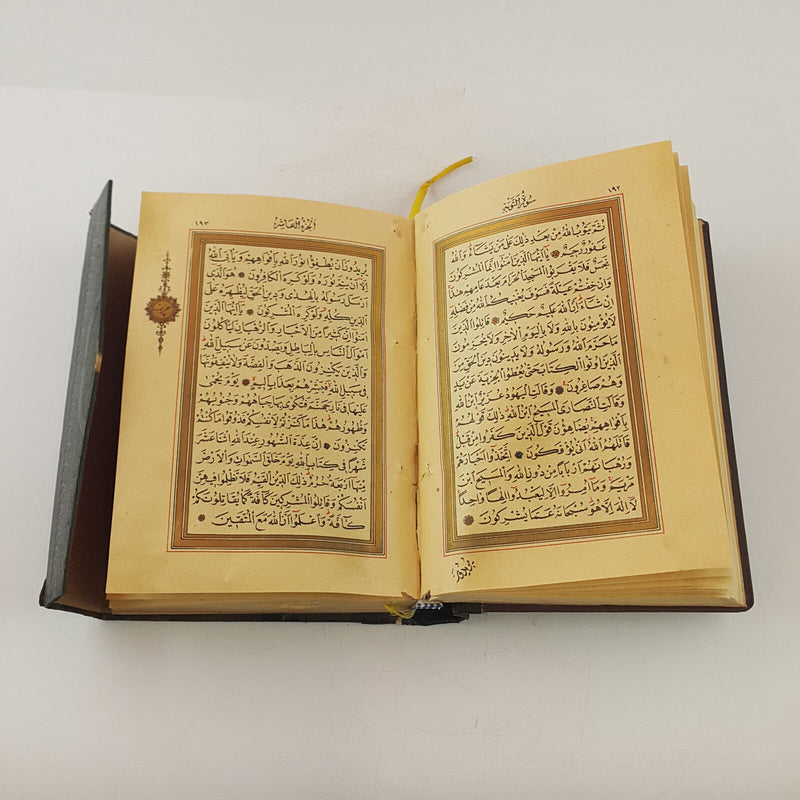 ١٩٢
سورة التوبة
ثم يتوب الله من بعد ذلك على من يشاء والله
غفور رحيم يا ايها الذين آمنوا انما المشركون
نجس فلا يقربوا المسجد الحرام بعد عامهم هذا
وان خفتم عيلة فسوف يغنيكم الله من فضله
ان شاء ان الله عليم حكيم قاتلوا الذين
لا يؤمنون بالله ولا باليوم الآخر ولا يحرمون
ما حرم الله ورسوله ولا يدينون دين الحق من
الذين اوتوا الكتاب حتى يعطوا الجزية عن يد
وهم صاغرون وقالت اليهود عزير ابن الله
وقالت النصارى المسيح ابن الله ذلك قولهم
بافواههم يضاهؤن قول الذين كفروا من قبل
قاتلهم الله انى يؤفكون اتخذوا احبارهم
ورهبانهم اربابا من دون الله والمسيح ابن
مريم وما امروا الا ليعبدوا الها واحدا
لا اله الا هو سبحانه عما يشركون
يريدون
الجزء العاشر
١٩٣
يريدون ان يطفؤا نور الله بافواههم ويأبى الله
الا ان يتم نوره ولو كره الكافرون هو الذي
ارسل رسوله بالهدى ودين الحق ليظهره على
الدين كله ولو كره المشركون يا ايها الذين
آمنوا ان كثيرا من الاحبار والرهبان ليأكلون
اموال الناس بالباطل ويصدون عن سبيل الله
والذين يكنزون الذهب والفضة ولا ينفقونها
في سبيل الله فبشرهم بعذاب اليم يوم يحمى
عليها في نار جهنم فتكوى بها جباههم وجنوبهم
وظهورهم هذا ما كنزتم لانفسكم فذوقوا ما كنتم
تكنزون ان عدة الشهور عند الله اثنا عشر
شهرا في كتاب الله يوم خلق السموات والارض
منها اربعة حرم ذلك الدين القيم فلا تظلموا فيهن
انفسكم وقاتلوا المشركين كافة كما يقاتلونكم
كافة واعلموا ان الله مع المتقين